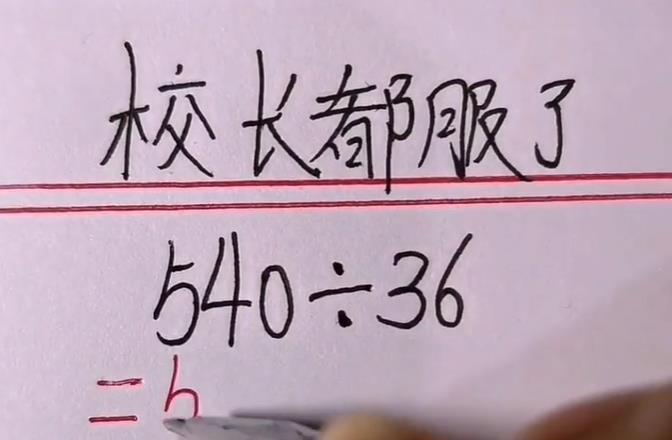 校长都服了
540÷36
=5